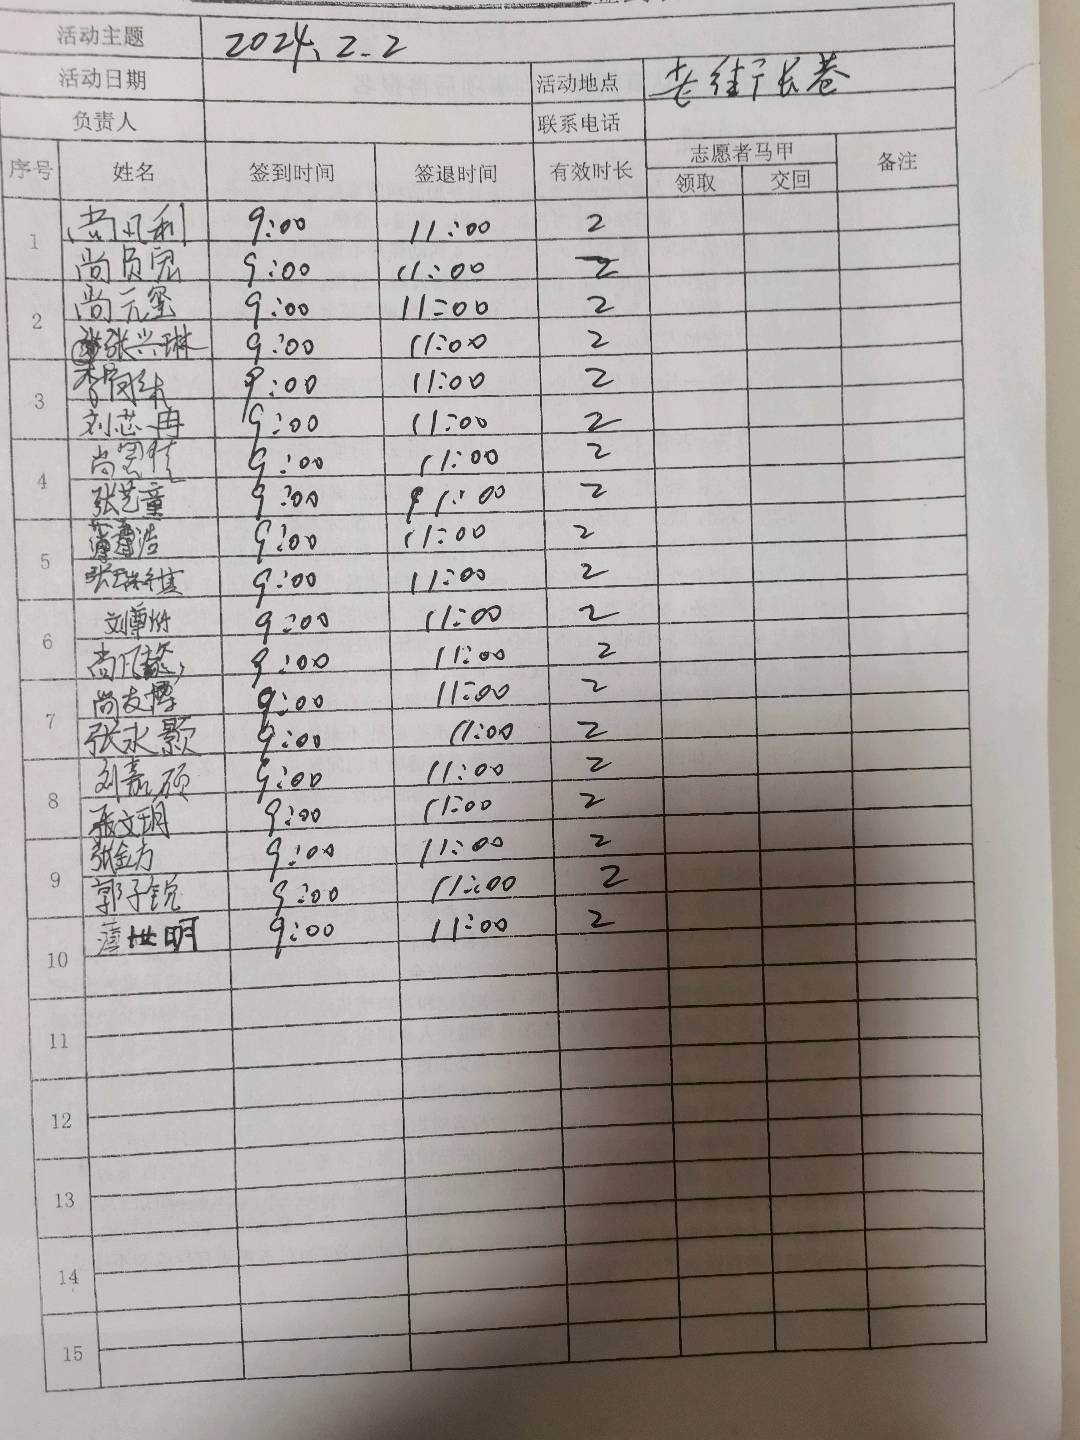 活动主题 2024.2.2
活动日期 活动地点 老街长巷
负责人 联系电话
序号 姓名 签到时间 签退时间 有效时长 志愿者马甲 备注
领取 交回
1 尚凡利 9:00 11:00 2
尚贞宽 9:00 11:00 2
2 尚元玺 9:00 11:00 2
张兴琳 9:00 11:00 2
3 9:00 11:00 2
刘芯冉 9:00 11:00 2
4 尚 9:00 11:00 2
张艺童 9:00 11:00 2
5 9:00 11:00 2
张 9:00 11:00 2
6 刘 9:00 11:00 2
尚凡懿 9:00 11:00 2
7 尚友博 9:00 11:00 2
张永颢 9:00 11:00 2
8 刘嘉硕 9:00 11:00 2
张文玥 9:00 11:00 2
9 张金方 9:00 11:00 2
郭子锐 9:00 11:00 2
10 世明 9:00 11:00 2
11
12
13
14
15